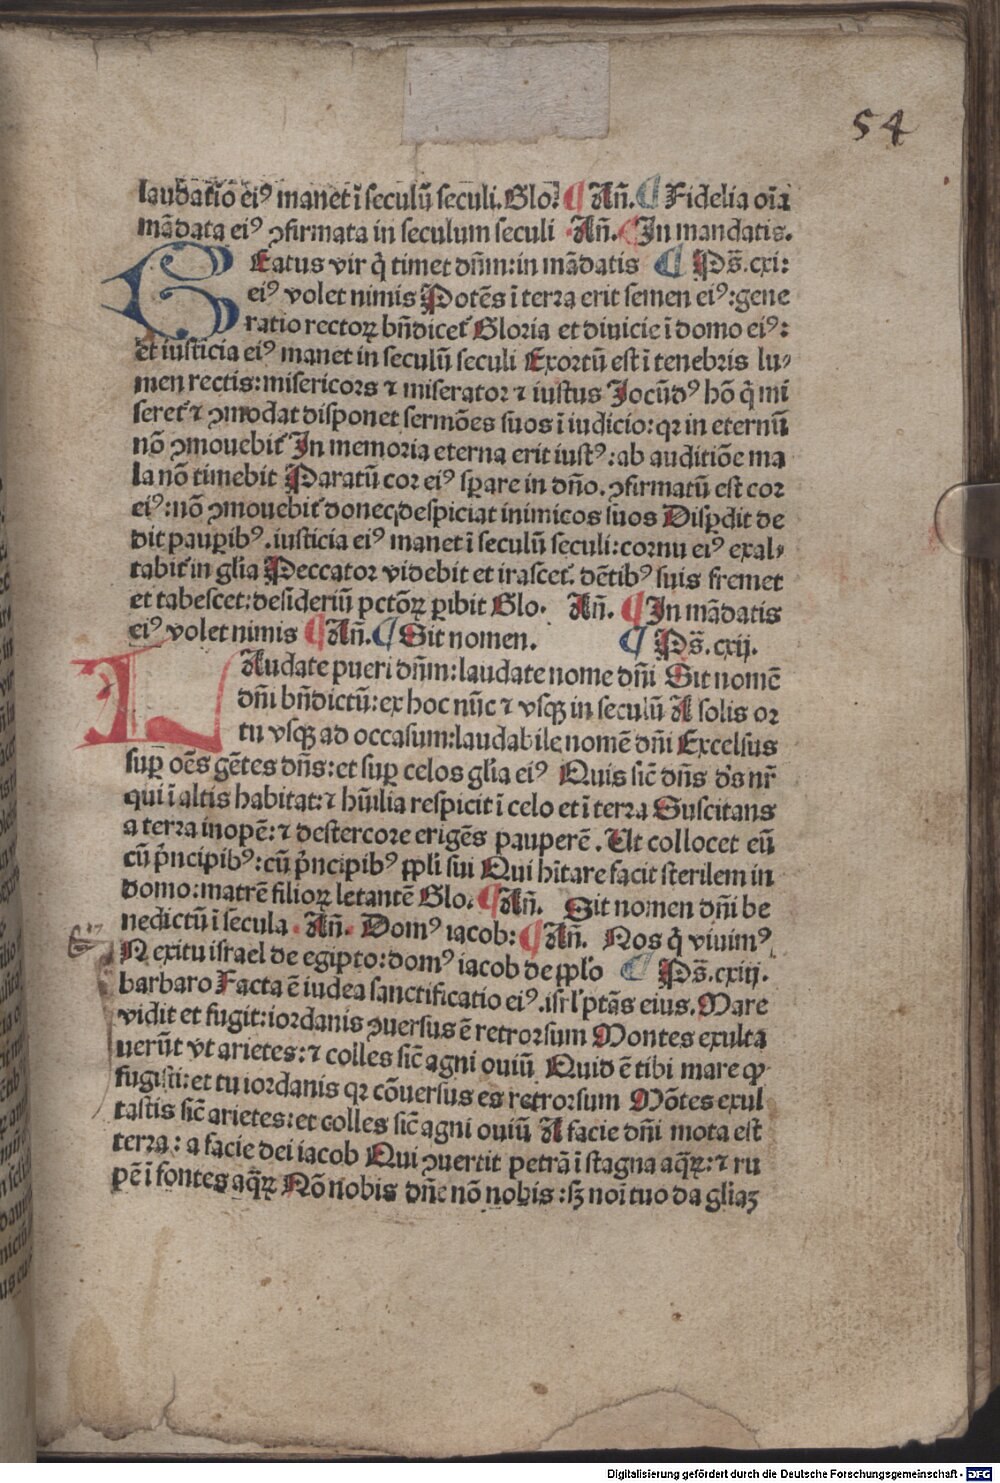 54
laudatiō eiꝰ manet ī seculū seculi. Glo. ¶ Añ. ¶ Fidelia oīa
mādata eiꝰ ꝯfirmata in seculum seculi Añ. ¶ In mandatis.
BEatus vir q̄ timet dñm: in mādatis ¶ Ps̄. cxi:
eiꝰ volet nimis Potēs ī terra erit semen eiꝰ: gene
ratio rectoꝝ bñdicet᷑ Gloria et diuicie ī domo eiꝰ:
et iusticia eiꝰ manet in seculū seculi Exortū est ī tenebris lu⸗
men rectis: misericors ⁊ miserator ⁊ iustus Jocūdꝰ hō q̄ mi
seret᷑ ⁊ ꝯmodat disponet sermōes suos ī iudicio: qꝛ in eternū
nō ꝯmouebit᷑ In memoria eterna erit iustꝰ: ab auditiōe ma
la nō timebit Paratū cor eiꝰ sꝑare in dño. ꝯfirmatū est cor
eiꝰ: nō ꝯmouebit᷑ donec despiciat inimicos suos Disꝑdit de
dit pauꝑibꝰ. iusticia eiꝰ manet ī seculū seculi: cornu eiꝰ exal⸗
tabit᷑ in gl̄ia Peccator videbit et irascet᷑. dētibꝰ suis fremet
et tabescet: desideriū pctōꝝ ꝑibit Glo. Añ. ¶ In mādatis
eiꝰ volet nimis ¶ Añ. ¶ Sit nomen. ¶ Ps̄. cxij.
LAudate pueri dñm: laudate nome dñi Sit nomē
dñi bñdictū: ex hoc nūc ⁊ vsqꝫ in seculū A solis or
tu vsqꝫ ad occasum: laudabile nomē dñi Excelsus
suꝑ oēs gētes dñs: et suꝑ celos gl̄ia eiꝰ Quis sic̄ dñs ds̄ nr̄
qui ī altis habitat: ⁊ hūilia respicit ī celo et ī terra Suscitans
a terra inopē: ⁊ destercore erigēs pauperē. Ut collocet eū
cū pͥncipibꝰ: cū pͥncipibꝰ ppl̄i sui Qui hītare facit sterilem in
domo: matrē filioꝝ letantē Glo. ¶ Añ. Sit nomen dñi be
nedictū ī secula. Añ. Domꝰ iacob: ¶ Añ. Nos q̄ viuimꝰ
IN exitu israel de egipto: domꝰ iacob de ppl̄o ¶ Ps̄. cxiij.
barbaro Facta ē iudea sanctificatio eiꝰ. isrl̄ ptās eius. Mare
vidit et fugit: iordanis ꝯuersus ē retrorsum Montes exulta
uerūt vt arietes: ⁊ colles sic̄ agni ouiū Quid ē tibi mare ꝙ
fugisti: et tu iordanis qꝛ cōuersus es retrorsum Mōtes exul
tastis sic̄ arietes: et colles sic̄ agni ouiū A facie dñi mota est
terra: a facie dei iacob Qui ꝯuertit petrā ī stagna aq̄ꝝ: ⁊ ru
pē ī fontes aq̄ꝝ Nō nobis dñe nō nobis: sꝫ noī tuo da gliaꝫ
Digitalisierung gefördert durch die Deutsche Forschungsgemeinschaft - DFG